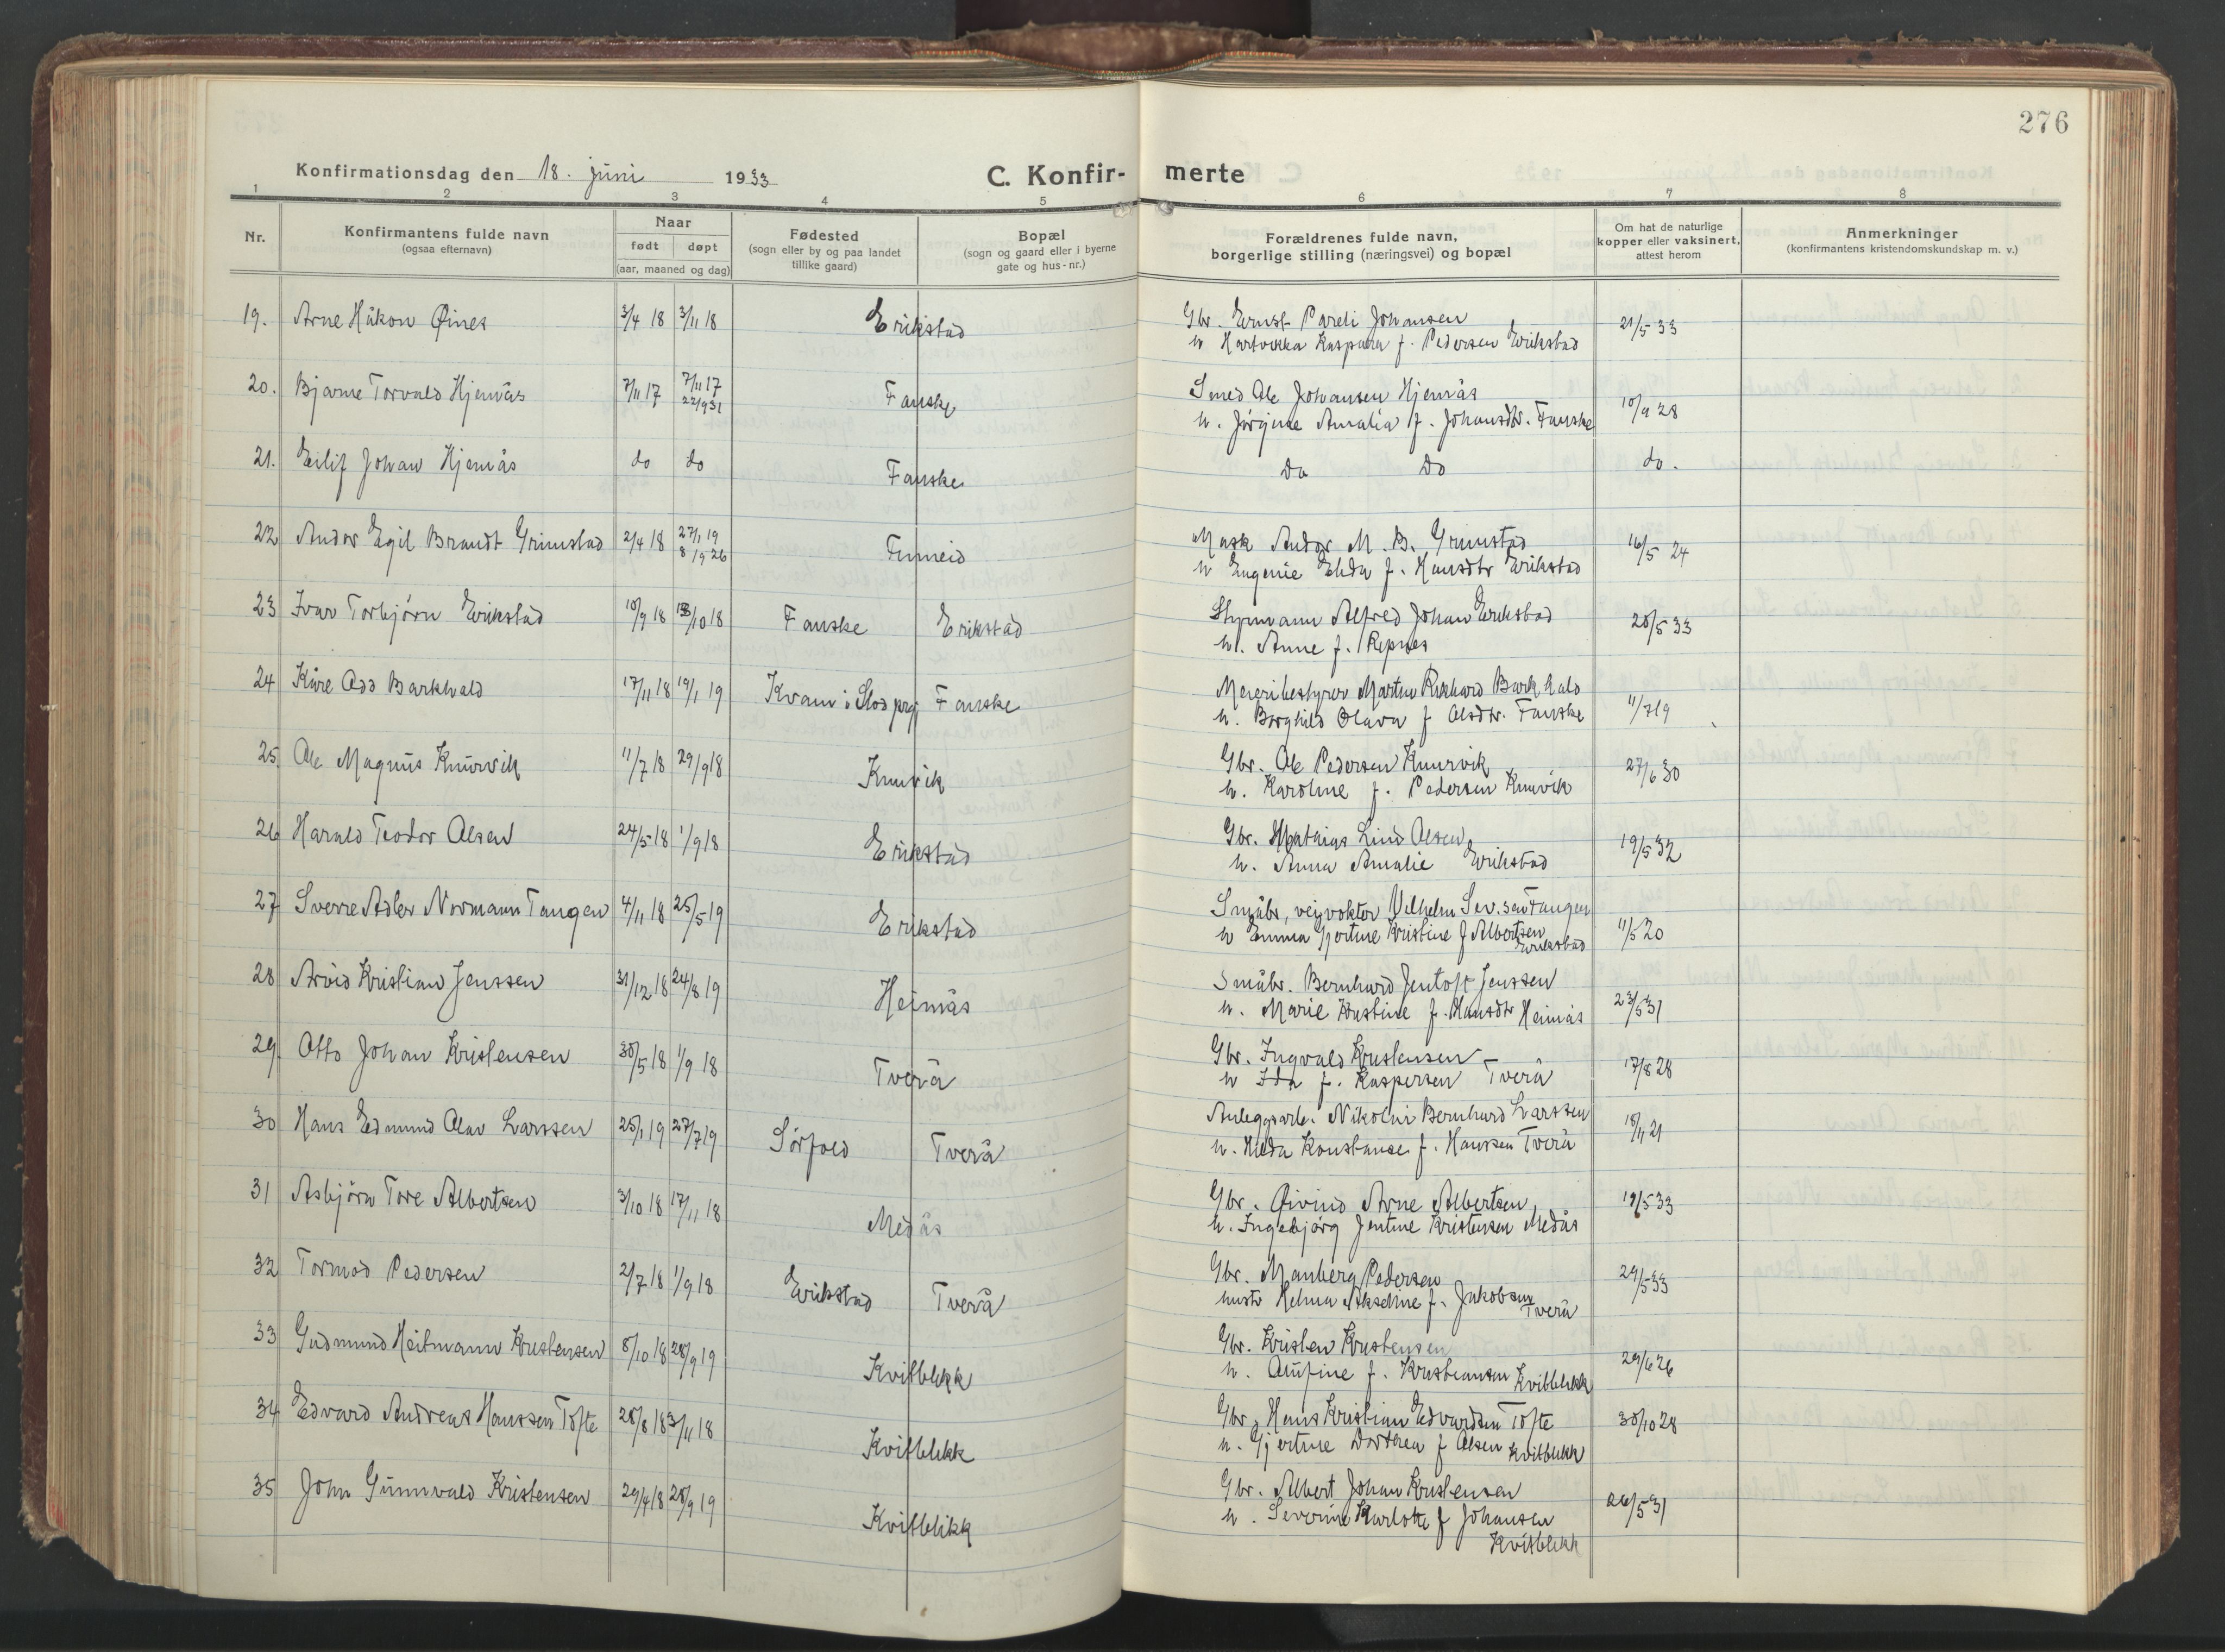 276
Konfirmationsdag den 18. juni 1933
C. Konfir- merte
1 2 3 4 5 6 7 8
Nr.
Konfirmantens fulde navn
(ogsaa efternavn)
Naar
født døpt
(aar, maaned og dag)
Fødested
(sogn eller by og paa landet
tillike gaard)
Bopæl
(sogn og gaard eller i byerne
gate og hus-nr.)
Forældrenes fulde navn,
borgerlige stilling (næringsvei) og bopæl
Om hat de naturlige
kopper eller vaksinert,
attest herom
Anmerkninger
(konfirmantens kristendomskundskap m. v.)
19. Arne Håkon Øines 3/4 18 3/11 18 Erikstad Gbr. Ernst Pareli Johansen 21/5 33
h. Hartvikka Kaspara f. Pedersen Erikstad
20. Bjarne Torvald Hjemås 7/11 17 7/11 17 Fauske Smed Ole Johansen Hjemås 10/9 28
22/9 31
h. Jørgine Amalia f. Johansdtr. Fauske
21. Eilif Johan Hjemås do do Fauske Do Do do.
22 Andor Egil Brandt Grimstad 2/4 18 27/1 19 Finneid Mask Andor M. B. Grimstad 16/5 24
8/9 26
h Eugenie Elida f. Hansdtr Erikstad
23 Ivar Torbjørn Erikstad 10/9 18 13/10 18 Fauske Erikstad Styrmann Alfred Johan Erikstad 28/5 33
h. Anne f. Repnes
24 Kåre Odd Barkhald 17/11 18 19/1 19 Kvam i Stod prg Fauske Meieribestyrer Martin Rikhard Barkhald 11/7 19
h. Borghild Olava f Olsdtr. Fauske
25. Ole Magnus Knurvik 11/7 18 29/9 18 Knurvik Gbr. Ole Pedersen Knurvik 27/6 30
h. Karoline f. Pedersen Knurvik
26 Harald Teodor Olsen 24/5 18 1/9 18 Erikstad Gbr. Mathias Lind Olsen 19/5 32
h. Anna Amalie Erikstad
27 Sverre Adler Normann Tangen 4/11 18 25/5 19 Erikstad Småbr, veivokter Vilhelm Sev.sen Tangen 11/5 20
h Emma Hjertine Kristine f Albertsen
Erikstad
28 Arvid Kristian Jenssen 31/12 18 24/8 19 Heimås Småbr. Bernhard Jentoft Jenssen 23/5 31
h. Marie Kristine f. Hansdtr Heimås
29. Otto Johan Kristensen 30/5 18 1/9 18 Tverå Gbr. Ingvald Kristensen 17/8 28
h Ida f. Kaspersen Tverå
30 Hans Edmund Olav Larssen 25/1 19 27/7 19 Sørfold Tverå Anleggsarb. Nikolai Bernhard Larssen 18/11 21
h. Hilda Konstanse f. Hanssen Tverå
31 Asbjørn Tore Albertsen 3/10 18 17/11 18 Medås Gbr. Øivind Arne Albertsen 19/5 33
h. Ingebjørg Jentine Kristensen Medås
32 Tormod Pedersen 2/7 18 1/9 18 Erikstad Tverå Gbr. Manberg Pedersen 29/5 33
hustr Helma Akseline f. Jakobsen
Tverå
33 Gudmund Heitmann Kristensen 8/10 18 28/9 19 Kvitblikk Gbr. Kristen Kristensen 29/6 26
h. Olufine f. Kristiansen Kvitblikk
34 Edvard Andreas Hanssen Tofte 28/8 18 3/11 18 Kvitblikk Gbr. Hans Kristian Edvardsen Tofte 30/10 28
h. Gjertine Dorthea f Olsen Kvitblikk
35 John Gunnvald Kristensen 29/4 18 28/9 19 Kvitblikk Gbr. Albert Johan Kristensen 26/5 31
h. Severine Karlotte f Johansen
Kvitblikk